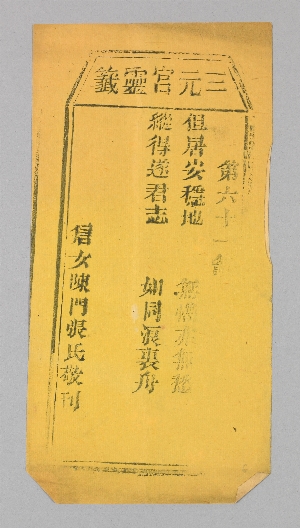 三元官靈籤
第六十一
但居安穩地
無憂亦無
縱得遂君志
如同浪裏舟
信女陳門張氏敬刊